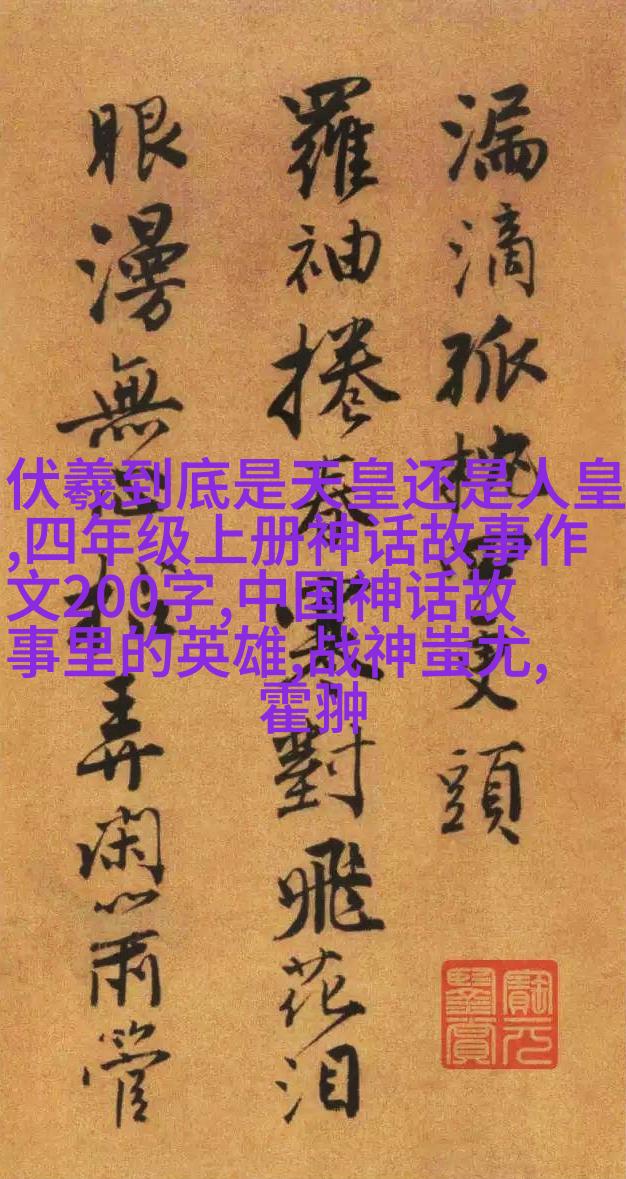 漏滴孤頭
羅袖捲春對飛花泪
眼漫無弄閑管
伏羲到底是天皇还是人皇
,四年级上册神话故事作
文200字,中国神话故
事里的英雄,战神蚩尤,
霍翀